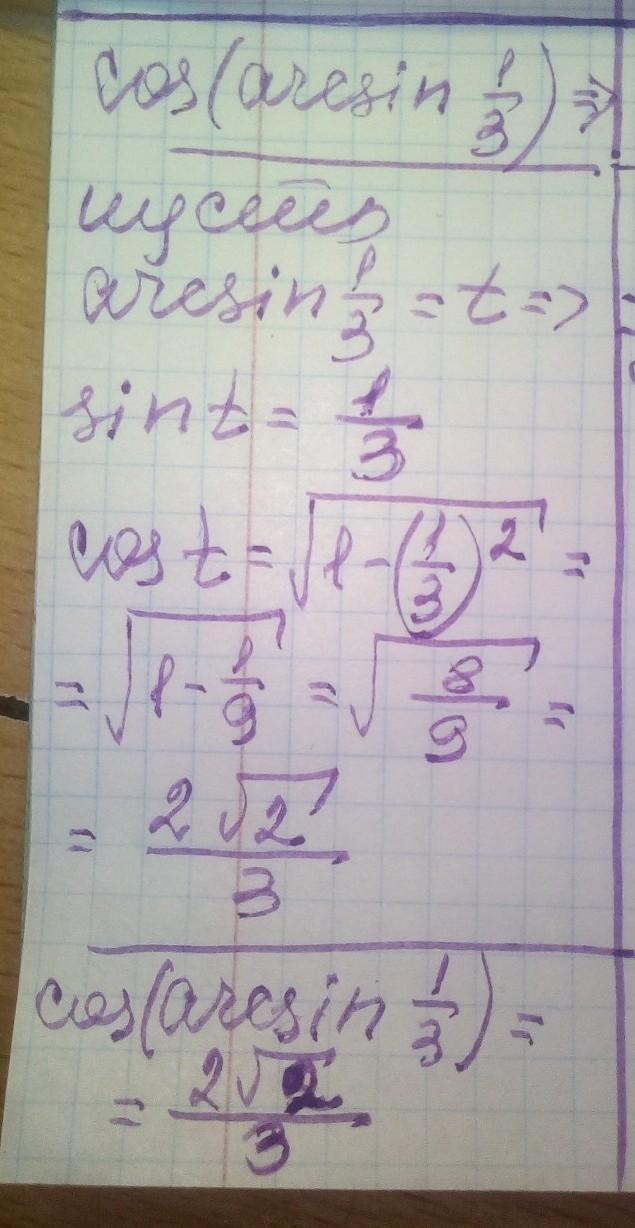 cos(arcsin 1/3) =>
пусть
arcsin 1/3 = t =>
sin t = 1/3
cos t = √(1 - (1/3)²) =
= √(1 - 1/9) = √(8/9) =
= 2√2/3
cos(arcsin 1/3) =
= 2√2/3